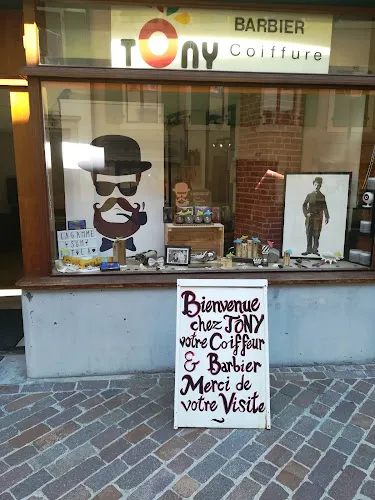 TONY
BARBIER
Coiffure
LA GAMME
SUMO
Bienvenue
chez TONY
votre Coiffeur
& Barbier
Merci de
votre Visite